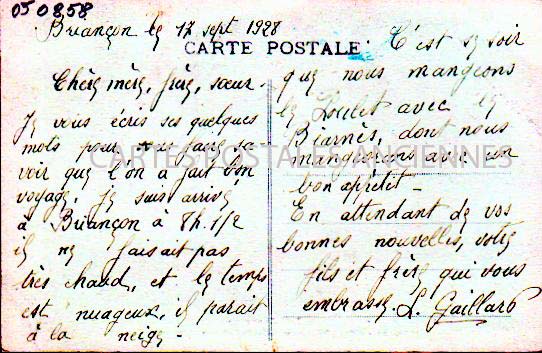 050858
Briançon le 17 sept 1928
CARTE POSTALE
Chère mère, frère, sœur.
Je vous écris ses quelques
mots pour vous faire sa
voir que l'on a fait bon
voyage, je suis arrivé
à Briançon à 8h.1/2
il ne faisait pas
très chaud, et le temps
est nuageux, il parait
à la neige -
C'est ce soir
que nous mangeons
le Poulet avec le
Biarnès, dont nous
mangierons avec un
bon appétit -
En attendant de vos
bonnes nouvelles, votre
fils et frère qui vous
embrasse. L. Gaillard
CARTES POSTALES ANCIENNES